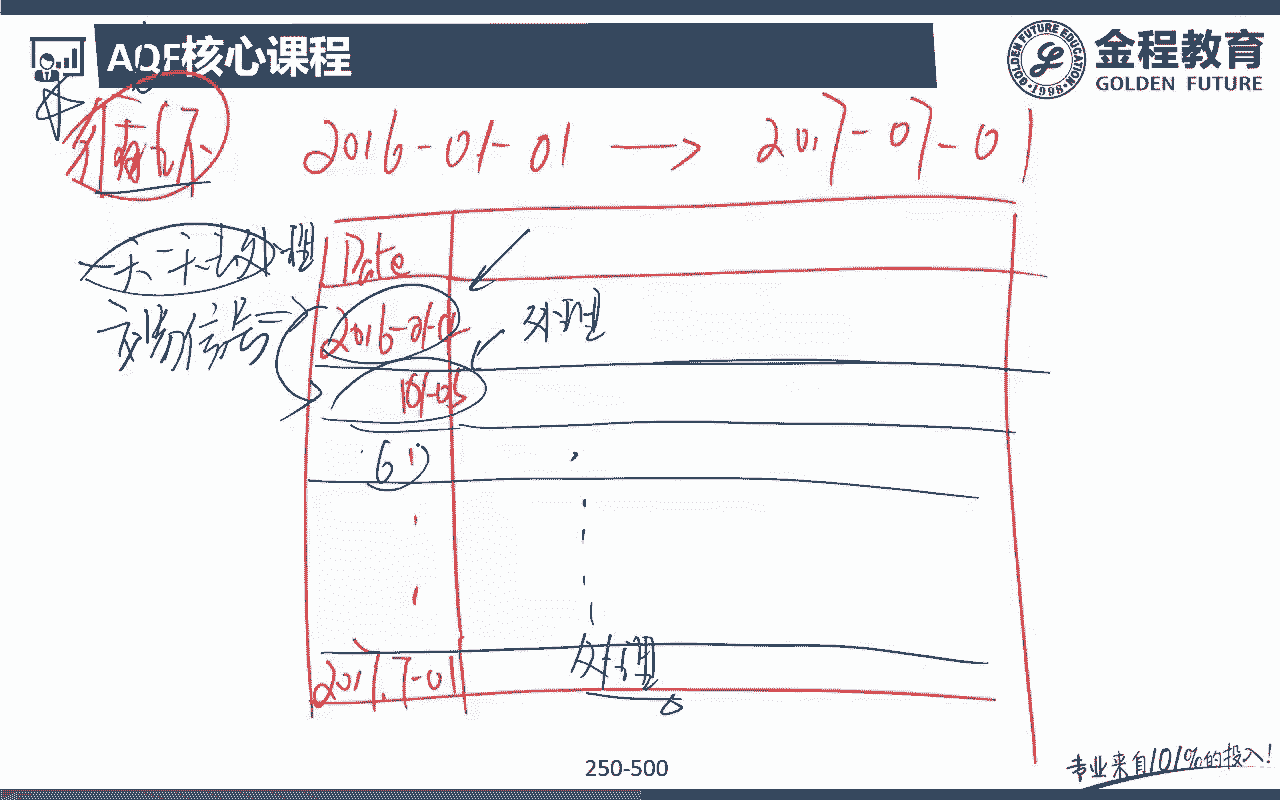 AQF核心课程
金程教育
GOLDEN FUTURE
GOLDEN FUTURE EDUCATION
1998
2016-01-01 → 2017-07-01
一天一天去处理
Date
交易信号
2016-01-01
处理
01-05
6)
2017.7-01
处理
250-500
专业来自101%的投入!